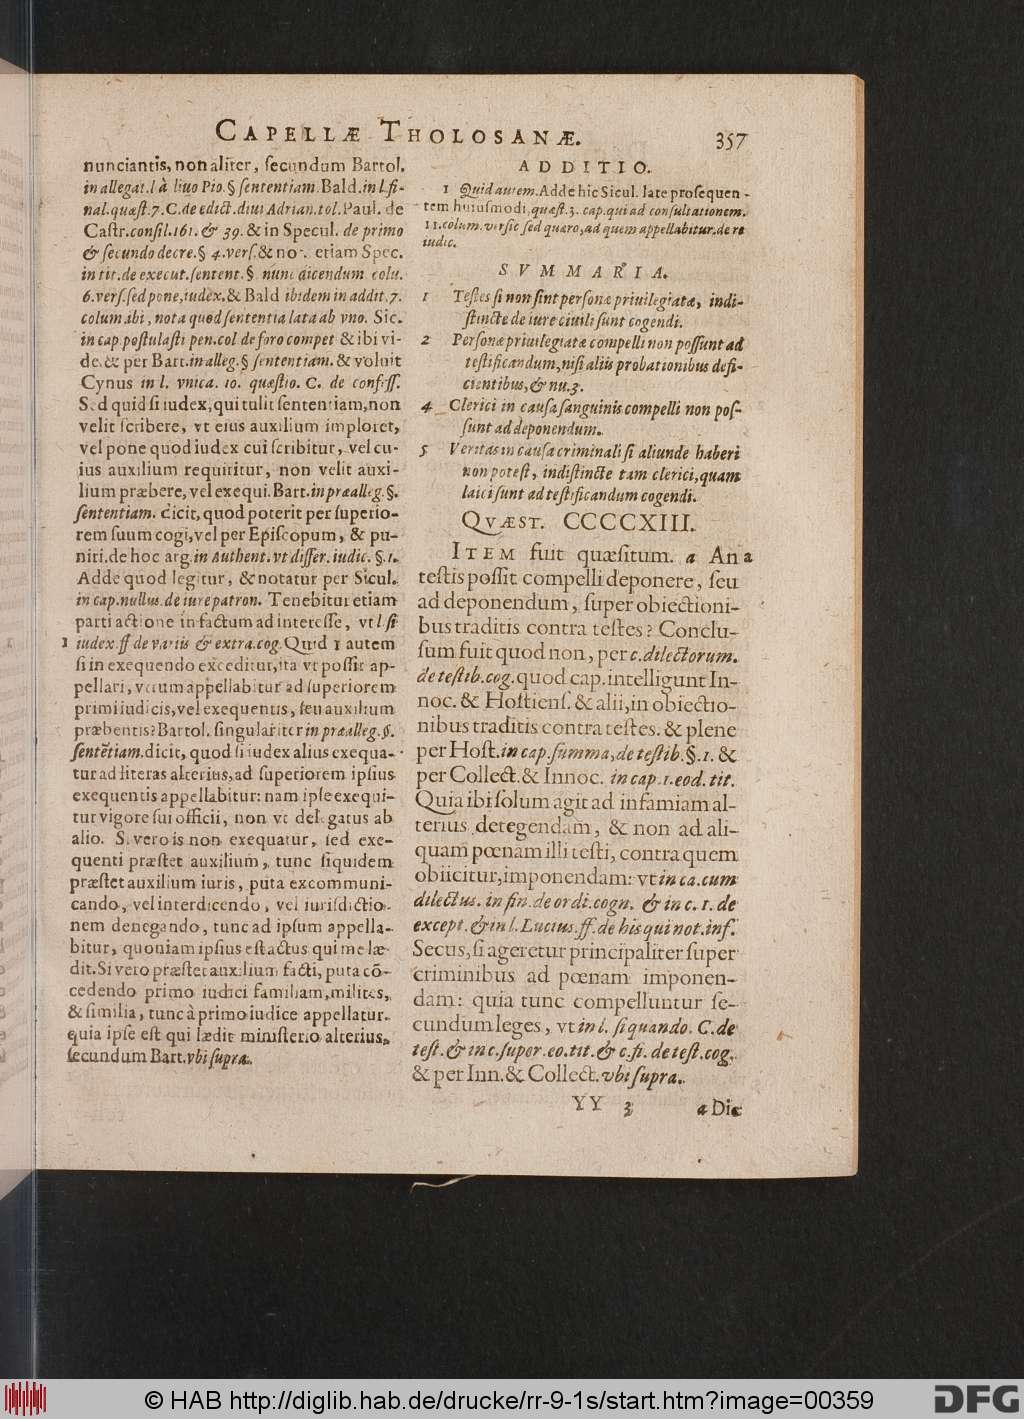 CAPELLÆ THOLOSANÆ. 357
nunciantis, non aliter, secundum Bartol.
in allegat. l à Diuo Pio. § sententiam. Bald. in l. fi-
nal. quæst. 7. C. de edict. diui Adrian. tol. Paul. de
Castr. consil. 161. & 39. & in Specul. de primo
& secundo decre. § 4. vers. & no. etiam Spec.
in tit. de execut. sentent. § nunc dicendum colu.
6. vers. sed pone, iudex. & Bald ibidem in addit. 7.
colum ibi, nota quod sententia lata ab vno. Sic.
in cap postulasti pen. col de foro compet & ibi vi-
de. & per Bart. in alleg. § sententiam. & voluit
Cynus in l. vnica. 10. quæstio. C. de confess.
Sed quid si iudex, qui tulit sententiam, non
velit scribere, vt eius auxilium imploret,
vel pone quod iudex cui scribitur, vel cu-
ius auxilium requiritur, non velit auxi-
lium præbere, vel exequi. Bart. in præalleg. §.
sententiam. dicit, quod poterit per superio-
rem suum cogi, vel per Episcopum, & pu-
niri. de hoc arg. in Authent. vt differ. iudic. §. 1.
Adde quod legitur, & notatur per Sicul.
in cap. nullus. de iure patron. Tenebitur etiam
parti actione in factum ad interesse, vt l. si
1 iudex. ff de variis & extra. cog. Quid 1 autem
si in exequendo exceditur, ita vt possit ap-
pellari, vtrum appellabitur ad superiorem
primi iudicis, vel exequentis, seu auxilium
præbentis? Bartol. singulariter in præalleg. §.
sentētiam. dicit, quod si iudex alius exequa-
tur ad literas alterius, ad superiorem ipsius
exequentis appellabitur: nam ipse exequi-
tur vigore sui officii, non vt delegatus ab
alio. Si vero is non exequatur, sed exe-
quenti præstet auxilium, tunc siquidem
præstet auxilium iuris, puta excommuni-
cando, vel interdicendo, vel iurisdictio-
nem denegando, tunc ad ipsum appella-
bitur, quoniam ipsius est actus qui me læ-
dit. Si vero præstet auxilium facti, puta cō-
cedendo primo iudici familiam, milites,
& similia, tunc à primo iudice appellatur.
quia ipse est qui lædit ministerio alterius,
secundum Bart. vbi supra.
ADDITIO.
1 Quid autem. Adde hic Sicul. late prosequen-
tem huiusmodi, quæst. 3. cap. qui ad consultationem.
11. colum. versic sed quæro, ad quem appellabitur. de re
iudic.
SVMMARIA.
1 Testes si non sint personæ priuilegiatæ, indi-
stincte de iure ciuili sunt cogendi.
2 Personæ priuilegiatæ compelli non possunt ad
testificandum, nisi aliis probationibus defi-
cientibus, & nu. 3.
4 Clerici in causa sanguinis compelli non pos-
sunt ad deponendum.
5 Veritas in causa criminali si aliunde haberi
non potest, indistincte tam clerici, quam
laici sunt ad testificandum cogendi.
QVÆST. CCCCXIII.
ITEM fuit quæsitum. a An a
testis possit compelli deponere, seu
ad deponendum, super obiectioni-
bus traditis contra testes? Conclu-
sum fuit quod non, per c. dilectorum.
de testib. cog. quod cap. intelligunt In-
noc. & Hostiens. & alii, in obiectio-
nibus traditis contra testes. & plene
per Host. in cap. summa, de testib. §. 1. &
per Collect. & Innoc. in cap. 1. eod. tit.
Quia ibi solum agit ad infamiam al-
terius detegendam, & non ad ali-
quam pœnam illi testi, contra quem
obiicitur, imponendam: vt in ca. cum
dilectus. in fin. de ordi. cogn. & in c. 1. de
except. & in l. Lucius. ff. de his qui not. inf.
Secus, si ageretur principaliter super
criminibus ad pœnam imponen-
dam: quia tunc compelluntur se-
cundum leges, vt in l. si quando. C. de
test. & in c. super. eo. tit. & c. fi. de test. cog.
& per Inn. & Collect. vbi supra.
YY 3 a Dic
© HAB http://diglib.hab.de/drucke/rr-9-1s/start.htm?image=00359
DFG